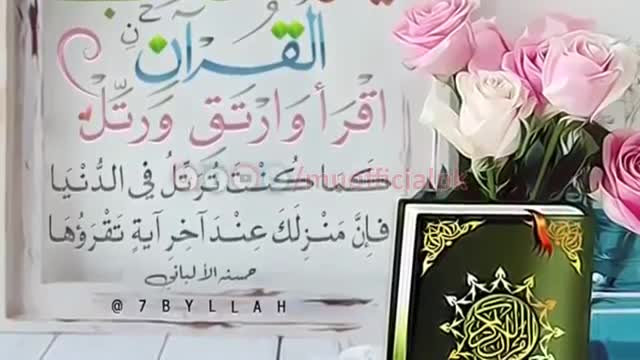 القُرآنِ
اقْرَأْ وَارْتَقِ وَرَتِّلْ
كَمَا كُنْتَ تُرَتِّلُ فِي الدُّنْيَا
فَإِنَّ مَنْزِلَكَ عِنْدَ آخِرِ آيَةٍ تَقْرَؤُهَا
حسنه الألباني
@7BYLLAH
/muofficialpk
القرآن الكريم